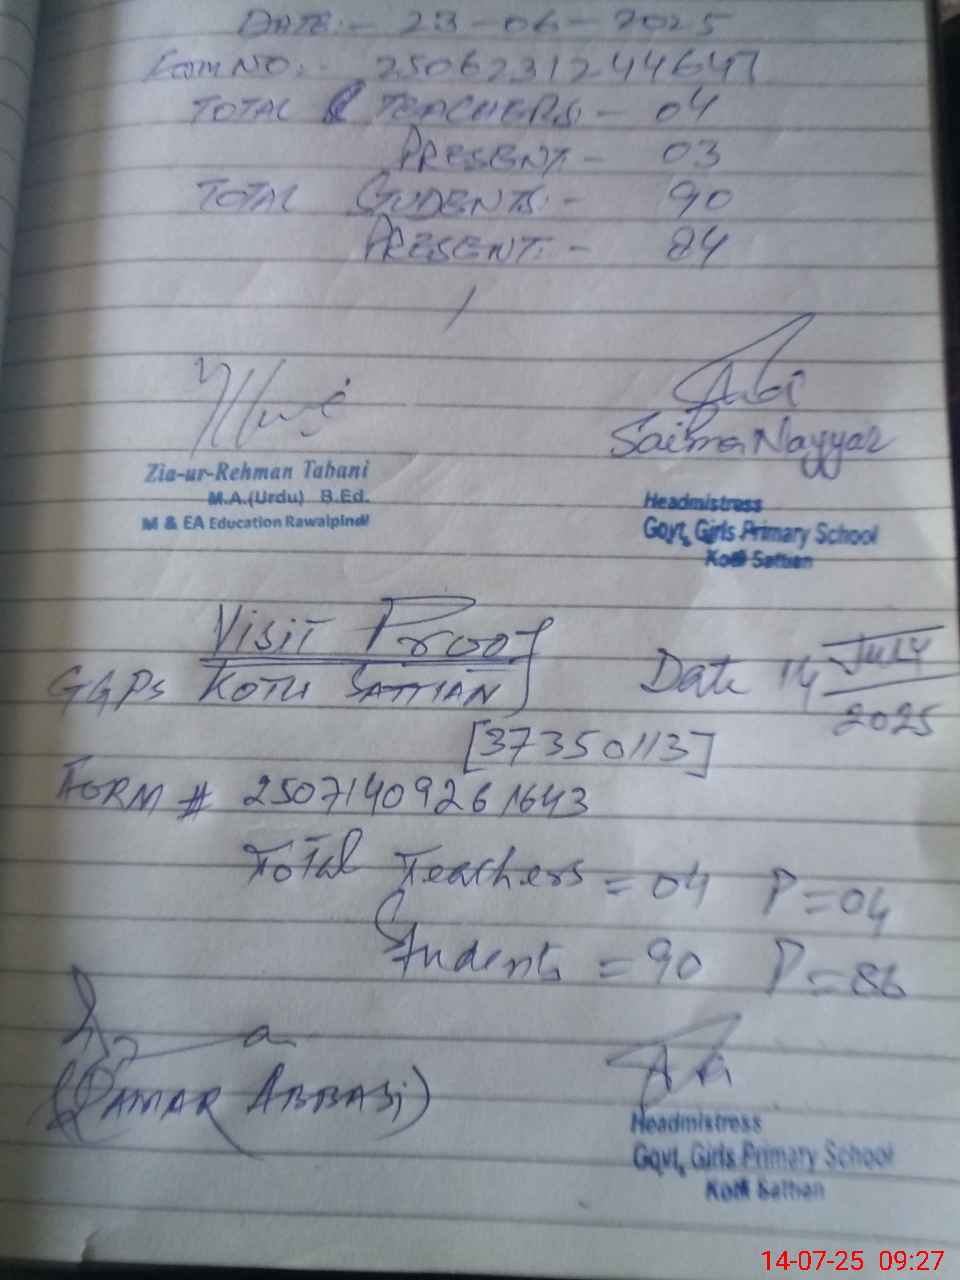 DATE:- 23-06-2025
FORM NO:- 250623124464
TOTAL TEACHERS:- 04
PRESENT:- 03
TOTAL STUDENTS:- 90
PRESENT:- 84
Saima Nayyar
Zia-ur-Rehman Tabani
M.A.(Urdu) B.Ed.
M & EA Education Rawalpindi
Headmistress
Govt, Girls Primary School
Kotli Sathian
Visit Proof
GGPS KOTLI SATTIAN Date 14 July 2025
[37350113]
FORM # 25071409261643
Total Teachers = 04 P = 04
Students = 90 P = 86
(QAMAR ABBASI)
Headmistress
Govt, Girls Primary School
Kotli Sathian
14-07-25 09:27